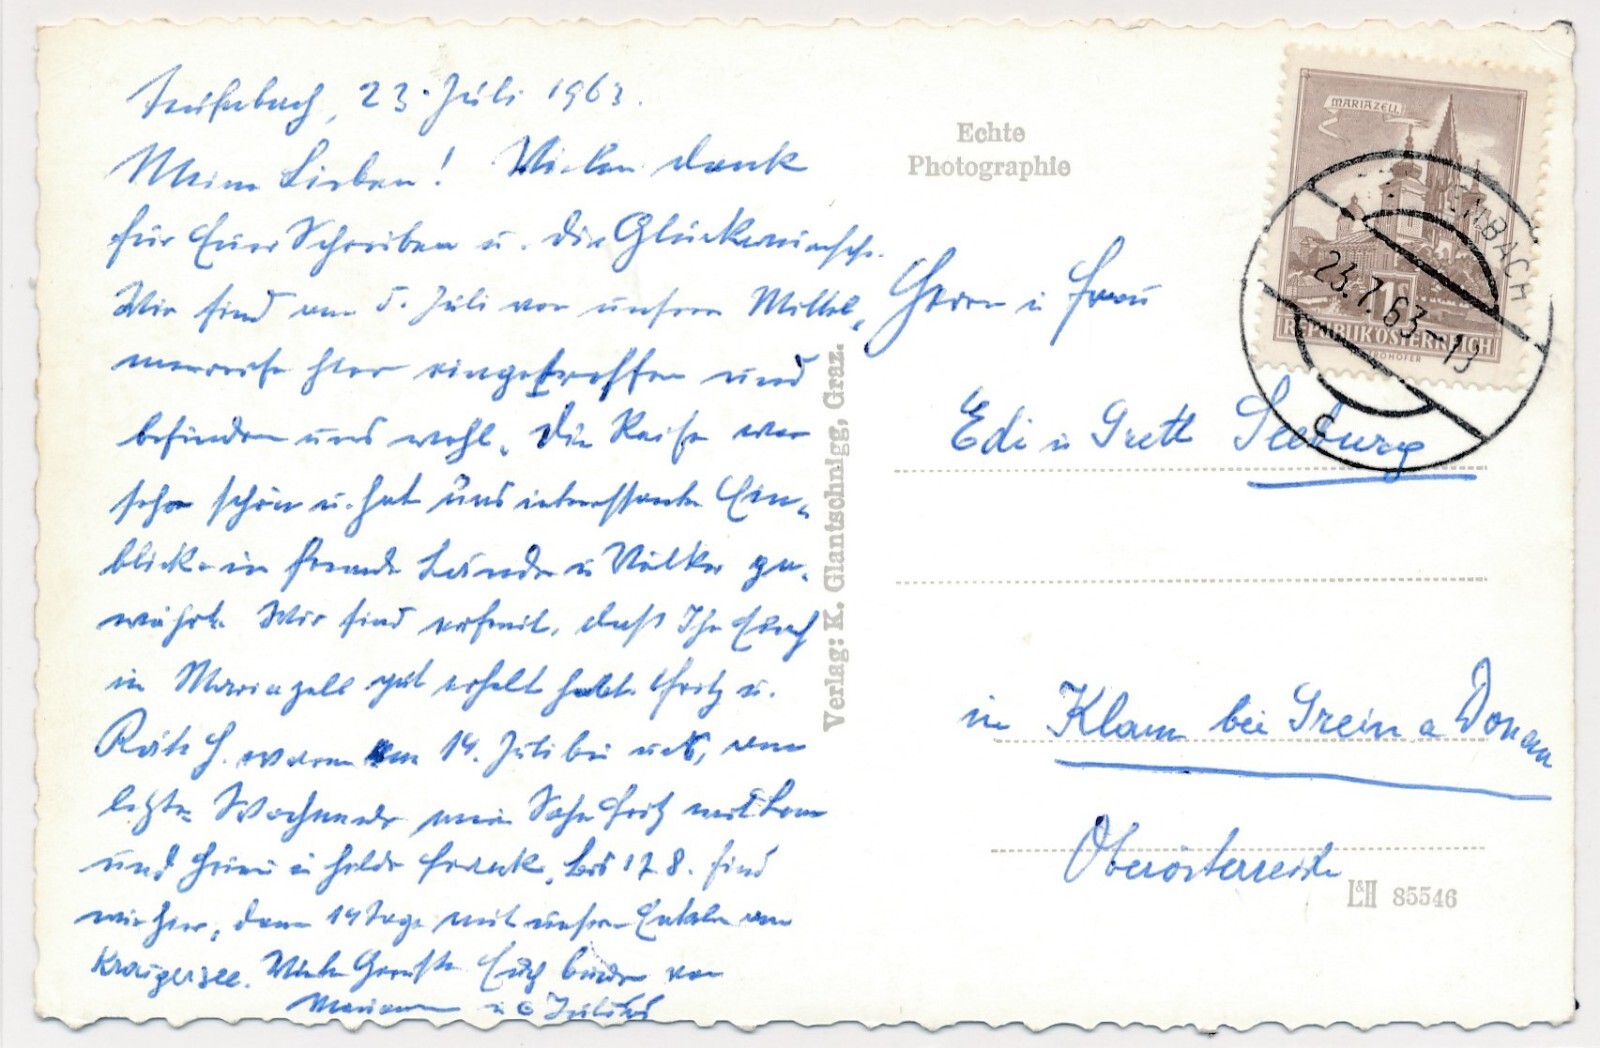 Teufenbach, 23. Juli 1963.
Meine Lieben! Vielen Dank
für Euer Schreiben u. die Glückwünsche.
Wir sind am 5. Juli von unserer Mittel-
meerreise hier eingetroffen und
befinden uns wohl. Die Reise war
sehr schön u. hat uns interessante Ein-
blicke in fremde Länder u Völker ge-
währt. Wir sind erfreut, daß Ihr Euch
in Mariazell gut erholt habt. Fritz u.
waren am 14. Juli bei uns, am
letzten Wochenende mein Sohn Fritz mit
und u Hilde Frank. Bis 17. 8. sind
wir hier, dann 14 Tage mit unseren Enkeln am
Kraigersee. Viele Grüße Euch beiden von
Mariann u Julius
Echte
Photographie
Verlag: K. Glantschnigg, Graz.
MARIAZELL
1S
REPUBLIK ÖSTERREICH
ENBACH
23.7.63-19
c
Herrn u Frau
Edi u Gretl Seeburg
in Klam bei Grein a Donau
Oberösterreich
L&H 85546